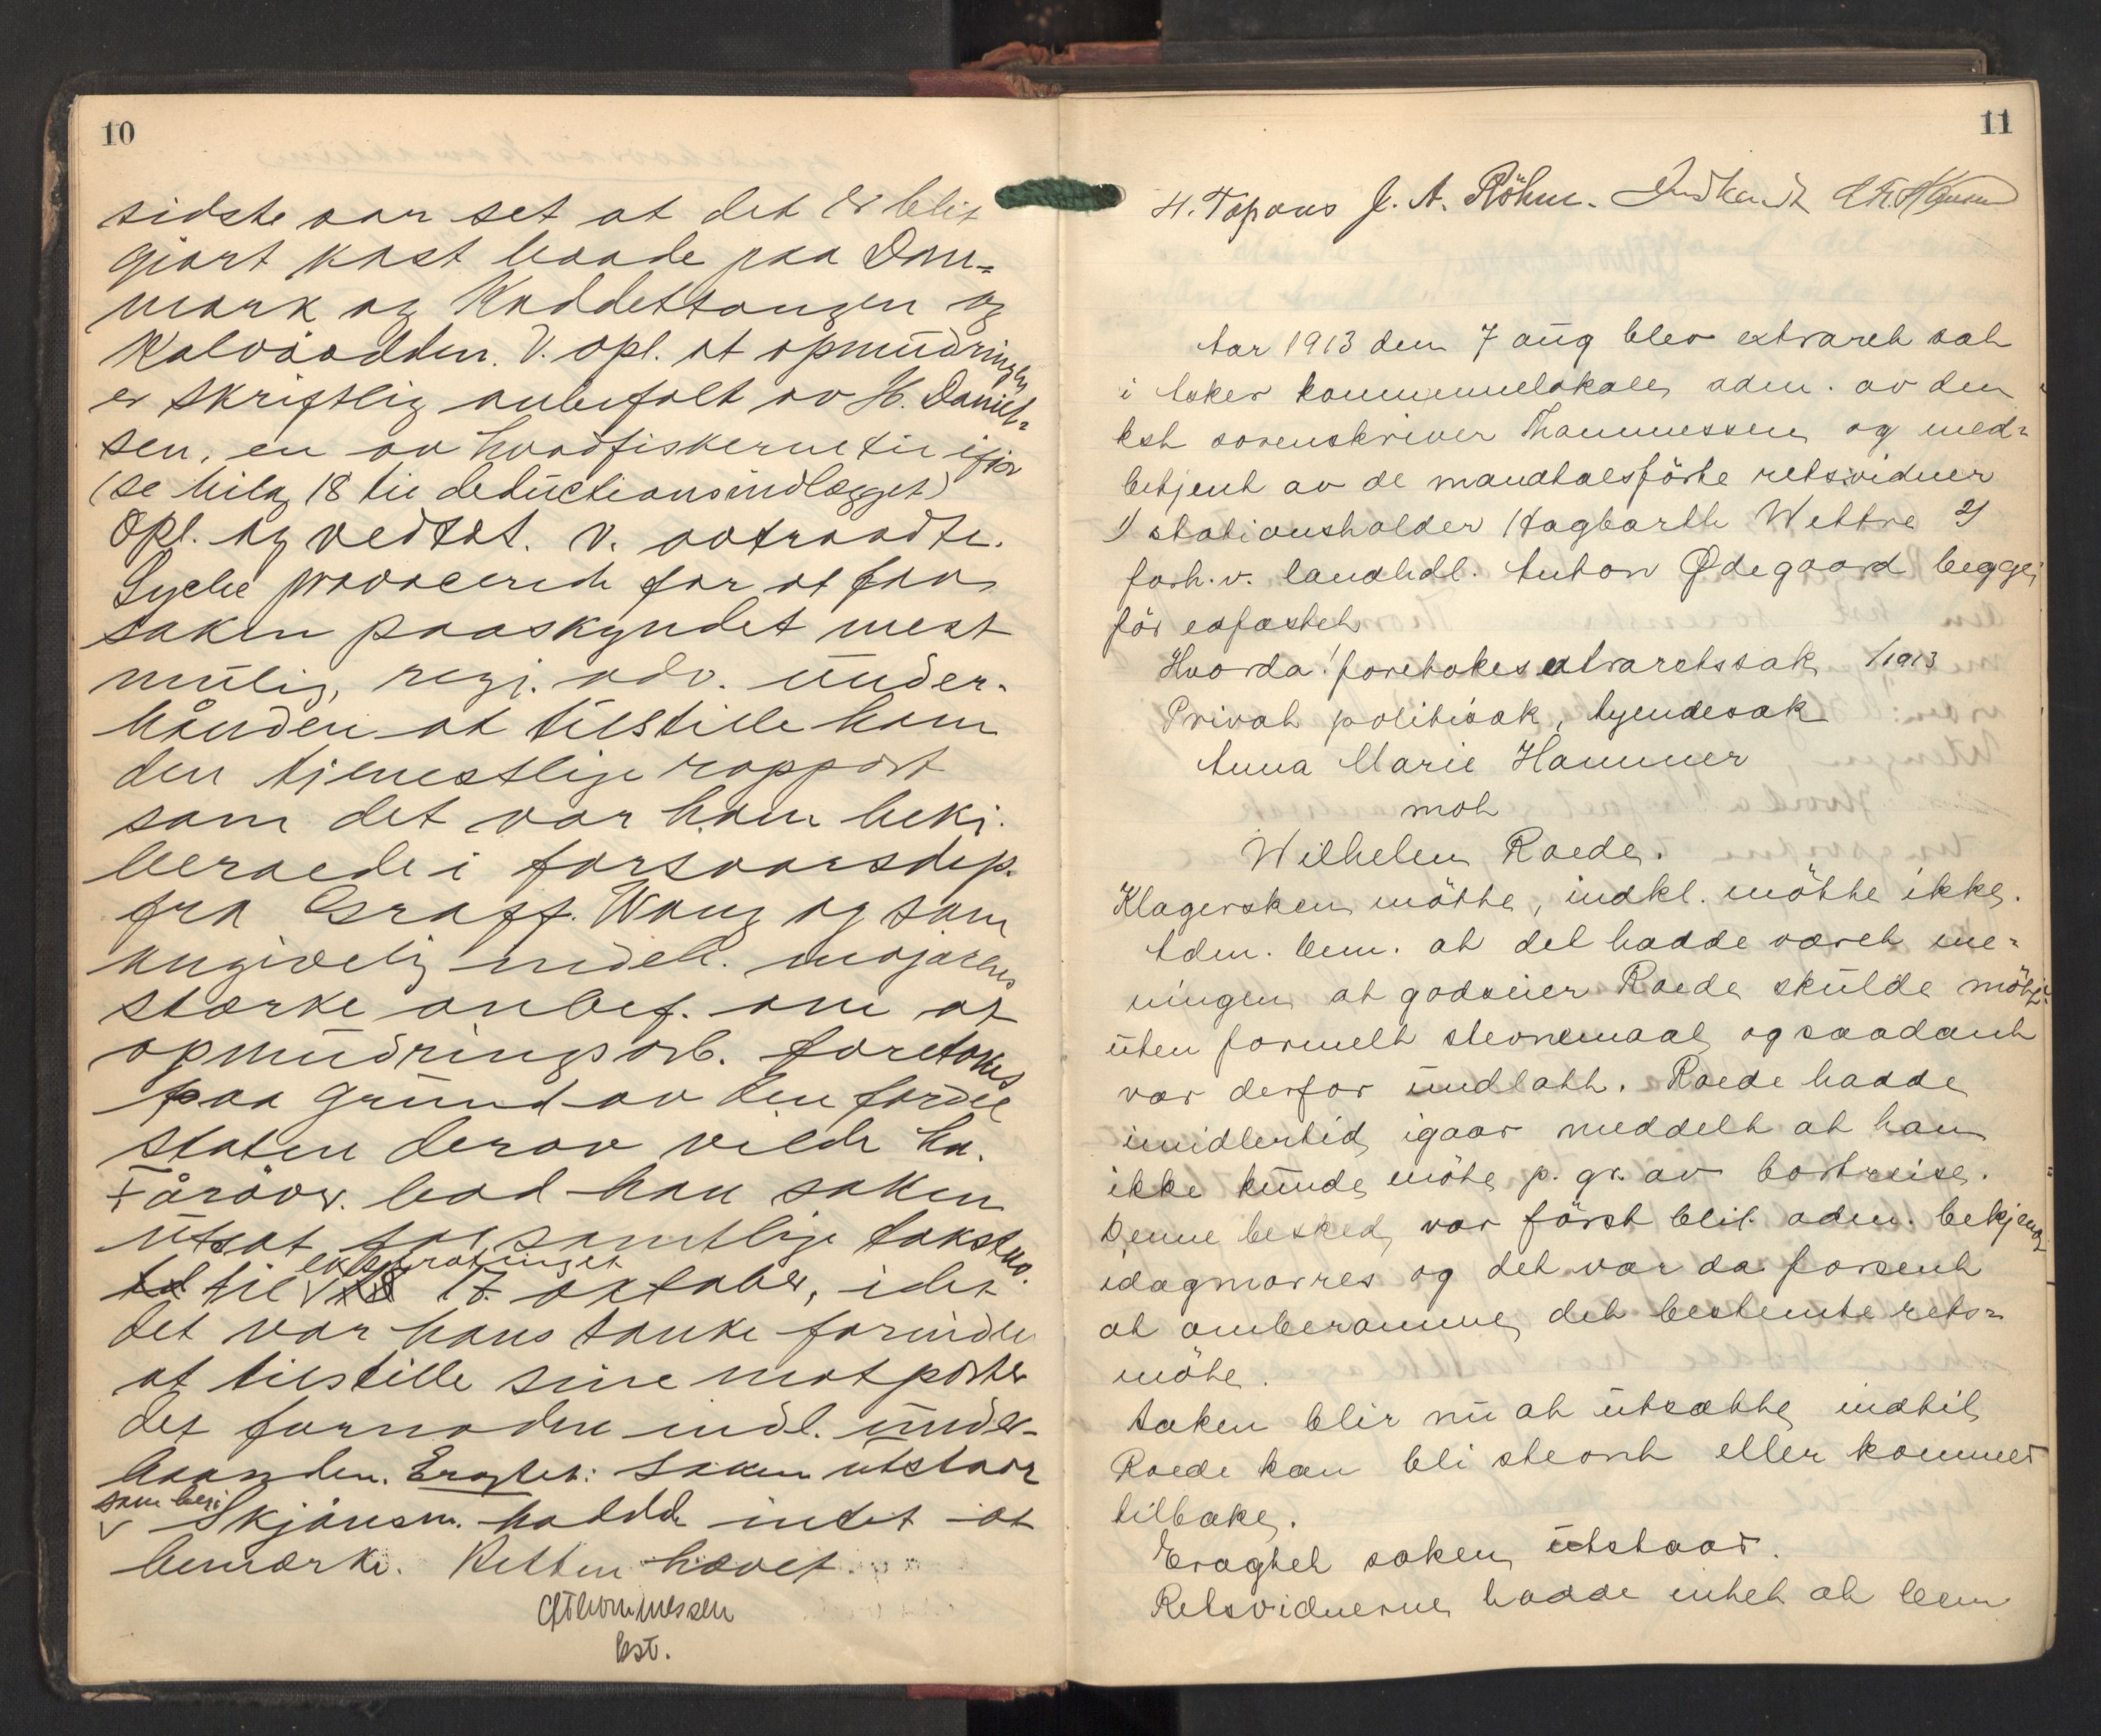 10
sidste aar set at det er blit
gjort kast baade paa Dan-
mark og Kaddettangen og
Kalvöodden. V. opl. at opmudringen
er skriftlig anbefalt av H. Daniel-
sen, en av hvadfiskerne til ifjor
(se bilag 18 til deductionsindlægget)
Opl. og vedtat. V. avtraadte.
Lyche provocerede for at faa
saken paaskyndet mest
mulig, regj. adv. under-
hånden at tilstille ham
den tjenestlige rapport
som det var ham bekj.
beroede i forsvarsdep.
fra Graff. Wang og som
angivelig indeh. majorens
stærke anbef. om at
opmudringsarb. foretokes
paa grund av den fordel
staten derav vilde ha.
Iårövr. bad han saken
utsat for samtlige takstno.
til efterretninget 17 oktober, idet
det var hans tanke forinden
at tilstille sine motparter
det fornødne indl. under-
haanden. Eragtet: saken utstaar
som beg.
Skjönsm. hadde intet at
bemærke. Retten hævet.
Thommessen
kst.
11
H. Topaas J. A. Röhm.
Aar 1913 den 7 aug blev extraret sat
i Asker kommunelokale, adm. av den
kst sorenskriver Thommessen og med-
betjent av de mandtalsförte retsvidner
1/ stationsholder Hagbarth Wettre 2/
forh.v. landhdl. Anton Ødegaard begge
för edfæstet
Hvorda! foretokes extraretssak /1913
Privat politisak, tyendesak
Anna Marie Hammer
mot
Wilhelm Roede.
Klagersken mötte, indkl. mötte ikke.
Adm. bem. at det hadde været me-
ningen at godseier Roede skulde möte
uten formelt stevnemaal og saadant
var derfor undlatt. Roede hadde
imidlertid igaar meddelt at han
ikke kunde möte p. gr. av bortreise.
Denne besked var först blit adm. bekjendt
idagmorres og det var da forsent
at omberamme det bestemte rets-
möte.
Saken blir nu at utsætte indtil
Roede kan bli stevnt eller kommer
tilbake.
Eragtet saken utstaar.
Retsvidnerne hadde intet at bem